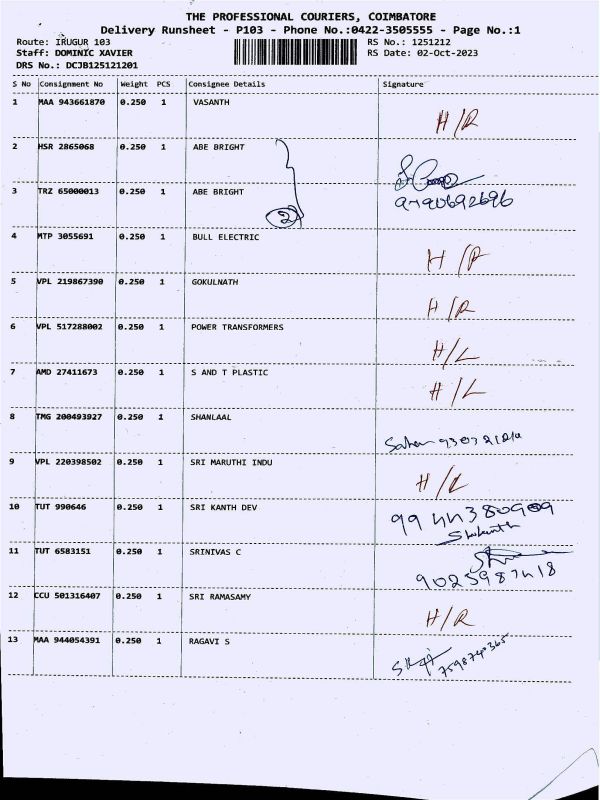 THE PROFESSIONAL COURIERS, COIMBATORE
Delivery Runsheet - P103 - Phone No.:0422-3505555 - Page No.:1
Route: IRUGUR 103 RS No.: 1251212
Staff: DOMINIC XAVIER RS Date: 02-Oct-2023
DRS No.: DCJB125121201
S No Consignment No Weight PCS Consignee Details Signature
1 MAA 943661870 0.250 1 VASANTH
H/R
2 HSR 2865068 0.250 1 ABE BRIGHT
3 TRZ 65000013 0.250 1 ABE BRIGHT
2
4 MTP 3055691 0.250 1 BULL ELECTRIC
5 VPL 219867390 0.250 1 GOKULNATH
H/R
6 VPL 517288002 0.250 1 POWER TRANSFORMERS
H/L
7 AMD 27411673 0.250 1 S AND T PLASTIC
H/L
8 TMG 200493927 0.250 1 SHANLAAL
9 VPL 220398502 0.250 1 SRI MARUTHI INDU
10 TUT 990646 0.250 1 SRI KANTH DEV
11 TUT 6583151 0.250 1 SRINIVAS C
12 CCU 501316407 0.250 1 SRI RAMASAMY
H/R
13 MAA 944054391 0.250 1 RAGAVI S